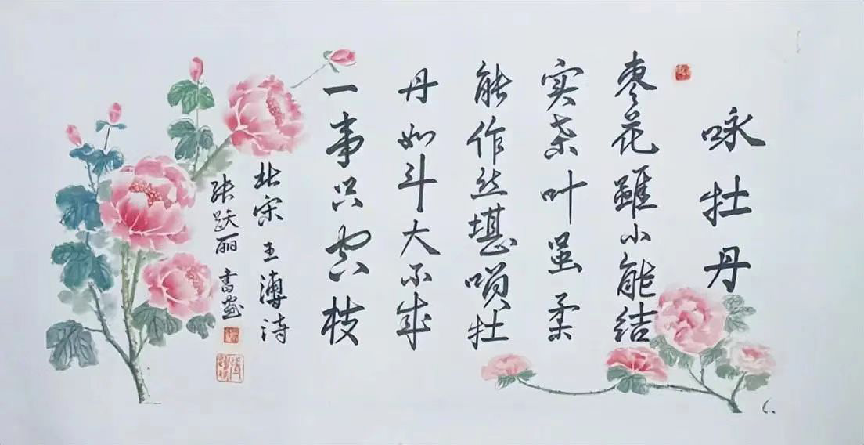 咏牡丹
枣花雖小能结
实桑叶虽柔
能作丝堪嗔牡
丹如斗大不成
一事只空枝
北宋王溥诗
张跃丽书画